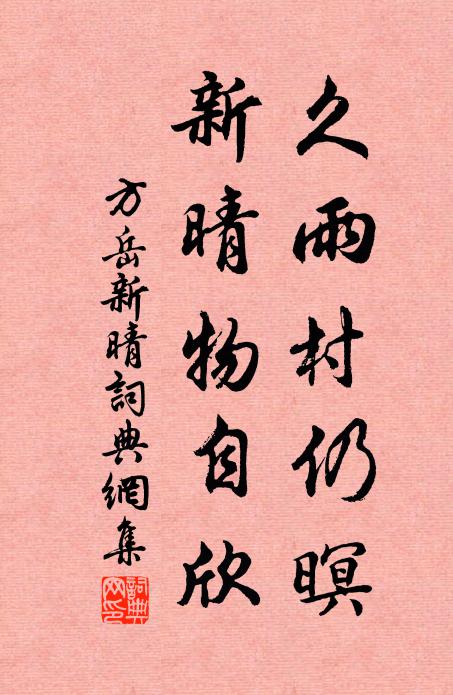 久雨村仍暝
新晴物自欣
方岳新晴詞典網集
詞典網印